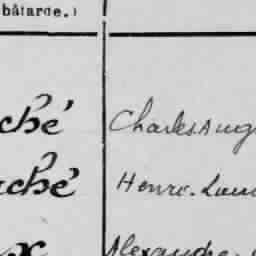 bâtarde.)
ché Charles Aug
ché Henri-Loui
x Alexandre